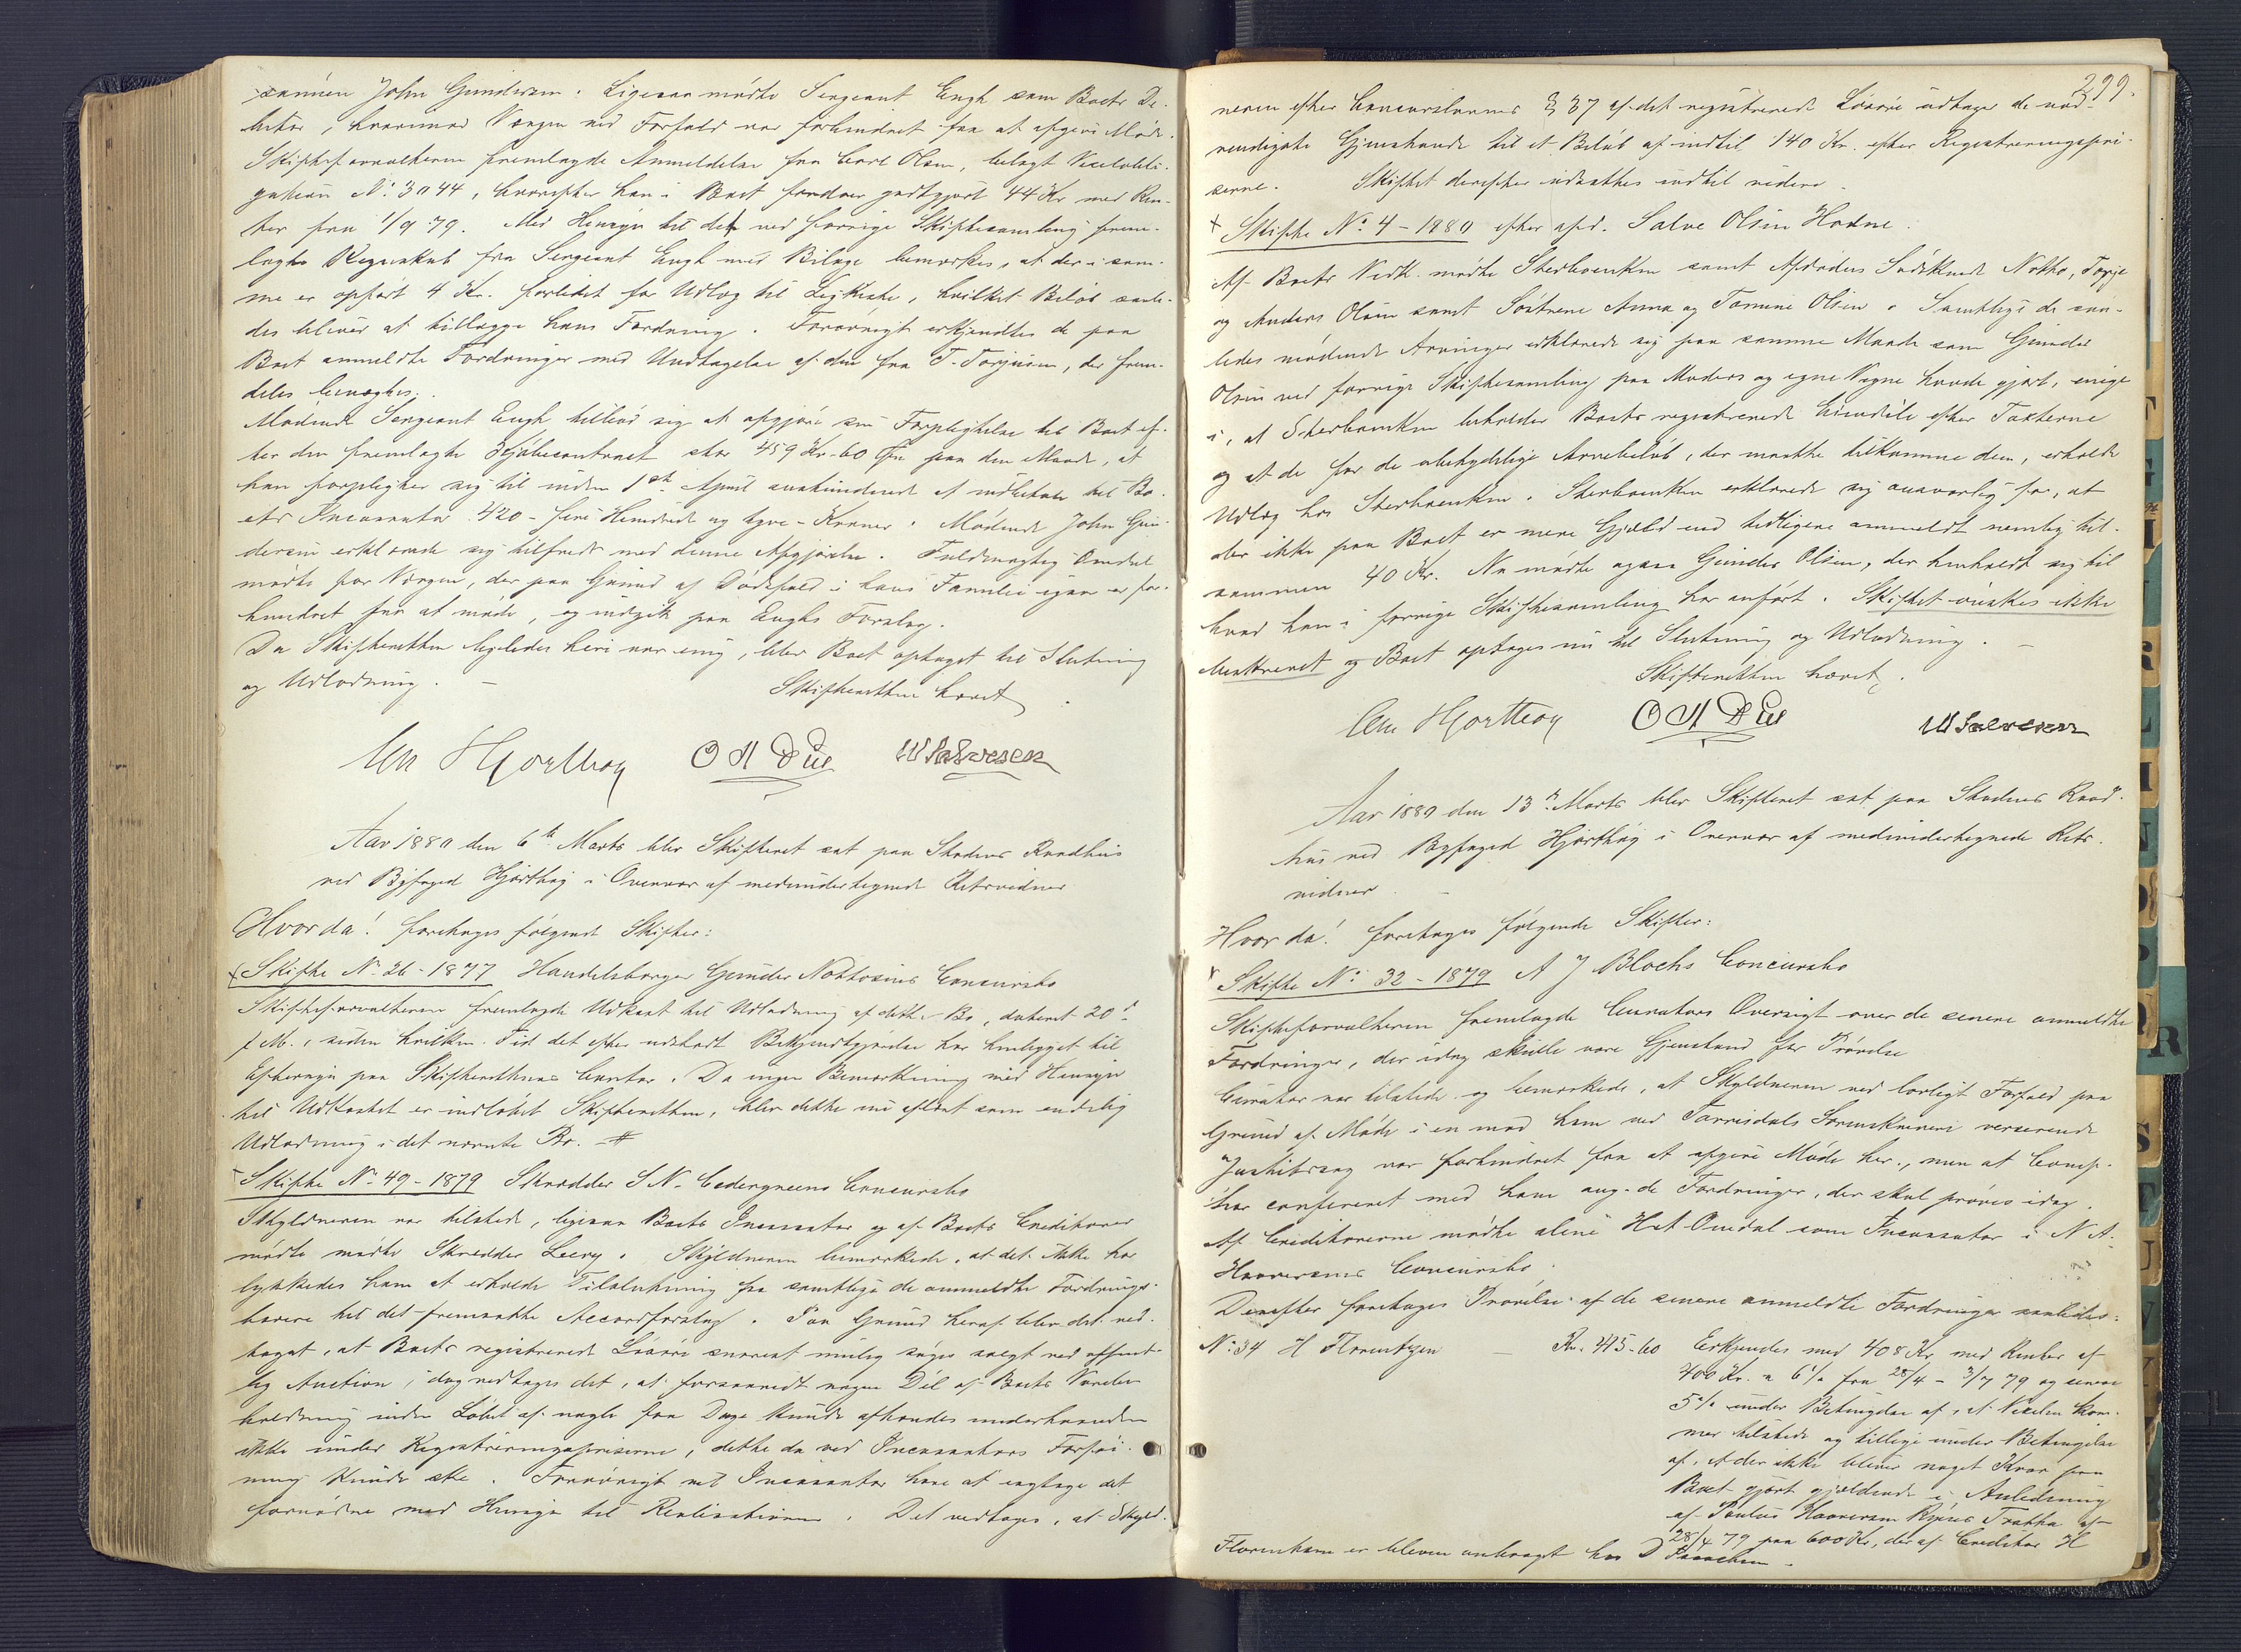 sannen John Gundersen. Ligesaa mødte Sergeant Engh som Boets De-
bitor, hvorimod Vangen ved Forfald var forhindret fra at afgive Møde.
Skifteforvalteren fremlagde Anmeldelse fra Carl Olsen, belagt Vexelobli-
gation No: 3044, hvorefter han i Boet fordrer godtgjort 44 Kr med Ren-
ter fra 1/9 79. Med Hensyn til det ved forrige Skiftesamling frem-
lagte Regnskab fra Sergeant Engh med Bilage bemærkes, at der i sam-
me er opført 4 Kr. forlidet for Udlæg til Ligkiste, hvilket Beløb saale-
des bliver at tillægge hans Fordring. Forøvrigt erkjendtes de paa
Boet anmeldte Fordringer med Undtagelse af den fra T. Torjusen, der frem-
deles benægtes.
Mødende Sergeant Engh tilbød sig at afgjøre sin Forpligtelse til Boet ef-
ter den fremlagte Kjøbecontract stor 459 Kr. 60 Øre paa den Maade, at
han forpligter sig til inden 1ste April anstundende at indbetale til Bo-
ets Incassator 420 - fire Hundrede og tyve - Kroner. Mødende John Gun-
dersen erklærede sig tilfreds med denne Afgjørelse. Fuldmægtig Omdal
mødte for Vangen, der paa Grund af Dødsfald i hans Familie igaar er for-
hindret fra at møde, og indgik paa Enghs Forslag.
Da Skifteretten ligeledes heri var enig, blev Boet optaget til Slutning
og Udlodning. -
Skifteretten hævet.
Chr Hjorthøy O A Due W Salvesen
Aar 1880 den 6te Marts blev Skifteret sat paa Stadens Raadhus
ved Byfoged Hjorthøy i Overvær af medundertegnede Retsvidner
Hvorda! foretoges følgende Skifter:
Skifte No. 26 - 1877 Handelsborger Gunder Nottosens Concursbo
Skifteforvalteren fremlagde Udkast til Udlodning af dette Bo, dateret 20de
f. M., siden hvilken Tid det efter udstedt Bekjendtgjørelse har henligget til
Eftersyn paa Skifterettens Contor. Da ingen Bemærkning med Hensyn
til Udkastet er indløbet Skifteretten, blev dette nu afsagt som endelig
Udlodning i det nævnte Bo. #
Skifte No. 49 - 1879 Skrædder S N. Cedergreens Concursbo
Skyldneren var tilstede, ligesaa Boets Incassator og af Boets Creditorer
mødte mødte Skrædder Leery. Skyldneren bemærkede, at det ikke har
lykkedes ham at erholde Tilslutning fra samtlige de anmeldte Fordrings-
havere til det fremsatte Accordforslag. Paa Grund heraf blev det ved-
taget, at Boets registrerede Løsøre snarest mulig søges solgt ved offent-
lig Auction, dog vedtages det, at forsaavidt nogen Del af Boets Vare-
beholdning inden Løbet af nogle faa Dage kunde afhændes underhaanden
ikke under Registreringspriserne, dette da ved Incassators Forføi-
ning kunde ske. Forøvrigt vil Incassator have at iagttage det
fornødne med Hensyn til Realisationen. Det vedtages, at Skyld-
299.
neren efter Concurslovens § 37 af det registrerede Løsøre udtager de nød-
vendigste Gjenstande til et Beløb af indtil 140 Kr. efter Registreringspri-
serne. Skiftet derefter udsattes indtil videre.
Skifte No. 4 - 1880 efter afd. Salve Olsen Hodne.
Af Boets Vedk. mødte Sterboenken samt Afdødes Sødskende Notto, Torje
og Anders Olsen samt Søstrene Anna og Tomine Olsen. Samtlige de saa-
ledes mødende Arvinger erklærede sig paa samme Maade som Gunder
Olsen ved forrige Skiftesamling paa Moders og egne Vegne havde gjort, enige
i, at Sterboenken beholder Boets registrerede Eiendele efter Taxterne
og at de for de ubetydelige Arvebeløb, der maatte tilkomme dem, erholde
Udlæg hos Sterboenken. Sterboenken erklærede sig ansvarlig for, at
der ikke paa Boet er mere Gjæld end tidligere anmeldt nemlig til-
sammen 40 Kr. Nu mødte ogsaa Gunder Olsen, der henholdt sig til
hvad han i forrige Skiftesamling har anført. Skiftet ønskes ikke
beskrevet og Boet optages nu til Slutning og Udlodning. -
Skifteretten hævet.
Chr Hjorthøy O A Due W Salvesen
Aar 1880 den 13de Marts blev Skifteret sat paa Stadens Raad-
hus ved Byfoged Hjorthøy i Overvær af medundertegnede Rets-
vidner. -
Hvor da! foretoges følgende Skifter:
Skifte No: 32 - 1879 A J Blochs Concursbo
Skifteforvalteren fremlagde Curators Oversigt over de senere anmeldte
Fordringer, der idag skulle være Gjenstand for Prøvelse
Curator var tilstede og bemærkede, at Skyldneren ved lovligt Forfald paa
Grund af Møde i en mod ham ved Torrisdals Sorenskriveri verserende
Justitssag var forhindret fra at afgive Møde her, men at Comp.
har confereret med ham ang. de Fordringer, der skal prøves idag.
Af Creditorerne mødte alene Hr Omdal som Incassator i N A.
Haaversens Concursbo.
Derefter foretoges Prøvelse af de senere anmeldte Fordringer saaledes:
No: 34 H Florentzen - Kr. 415-60 Erkjendes med 408 Kr med Renter af
400 Kr. a 6 % fra 28/4 - 3/7 79 og senere
5 % under Betingelse af, at Vexelen kom-
mer tilstede og tillige under Betingelse
af, at der ikke bliver noget Krav paa
Boet gjort gjældende i Anledning
af Paulus Haaversen Tratta af
28/4 79 paa 600 Kr, der af Creditor H
Florentzen er bleven antaget hos D